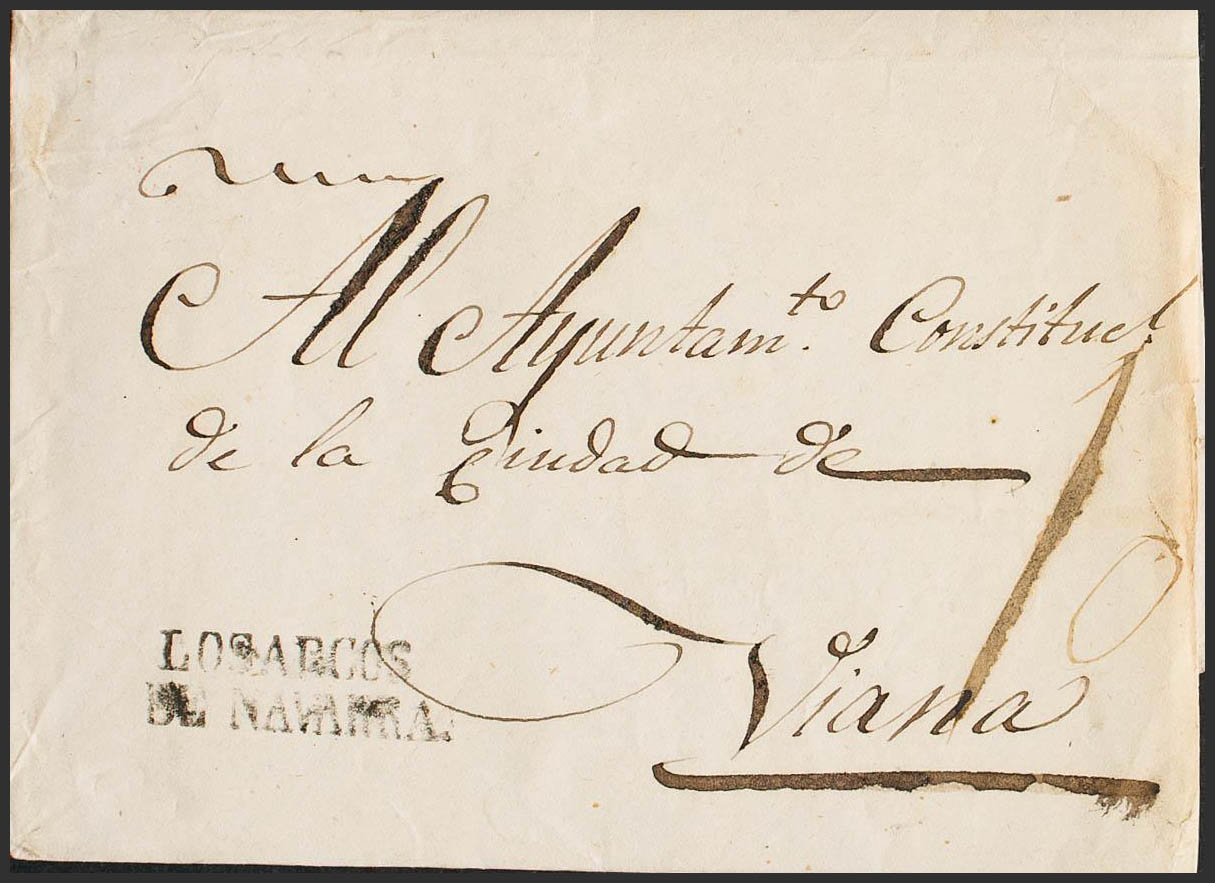 Al Ayuntam.to Constituc.l
de la Ciudad de
Viana
LOS ARCOS
DE NAVARRA.